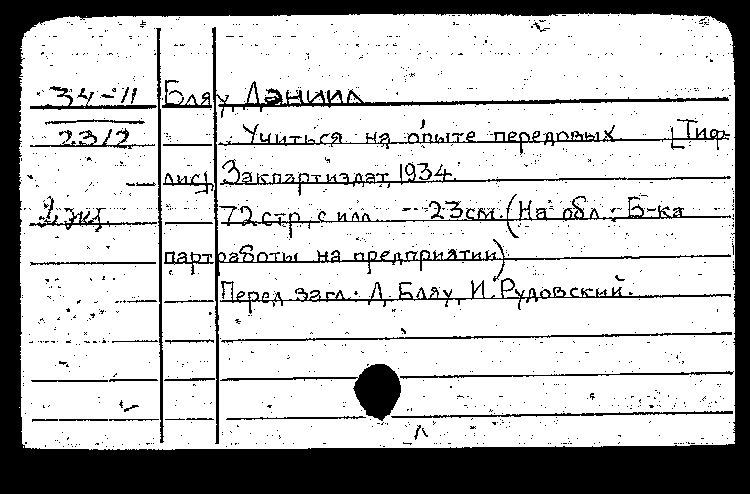 34-11 Бляу, Даниил
2312 Учиться на опыте передовых [Тиф-
лис], Закпартиздат, 1934.
2 экз. 72 стр., с илл. 23 см. (На обл.: Б-ка
партработы на предприятии)
Перед загл.: Д. Бляу, И. Рудовский.